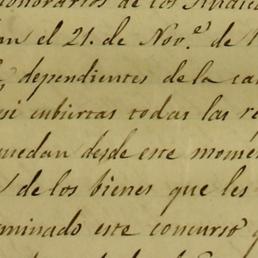 honorarios de los Sindic
an el 21. de Nov.e de 1
dependientes de la ca
si cubiertas todas las re
quedan desde este momen
de los bienes que les
minado este concurso